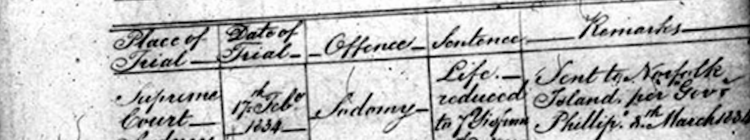 Place of Trial Date of Trial Offence Sentence Remarks
Supreme Court 17th Feby 1834 Sodomy Life reduced to 7 Sent to Norfolk Island per Govr Phillip March